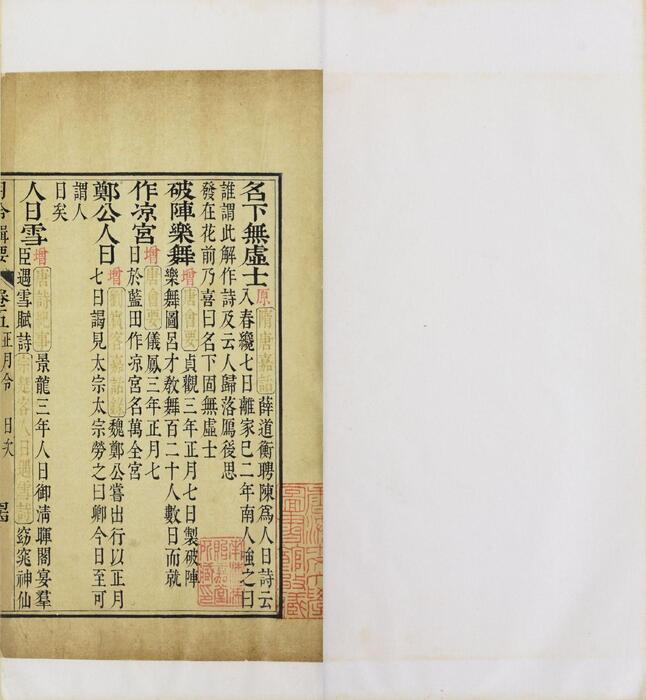 名下無虛士 原 隋唐嘉話 薛道衡聘陳爲人日詩云
入春纔七日離家已二年南人強之曰
誰謂此解作詩及云人歸落鴈後思
發在花前乃喜曰名下固無虛士
破陣樂舞 增 唐會要 貞觀三年正月七日製破陣
樂舞圖呂才教舞百二十人數日而就
作凉宮 增 唐會要 儀鳳三年正月七
日於藍田作凉宮名萬全宮
鄭公人日 增 劉賓客嘉話錄 魏鄭公嘗出行以正月
七日謁見太宗太宗勞之曰卿今日至可
謂人
日矣
人日雪 增 唐詩紀事 景龍三年人日御淸暉閣宴羣
臣遇雪賦詩 宗楚客人日遇雪詩 窈窕神仙
月令輯要 卷五 正月令 日次